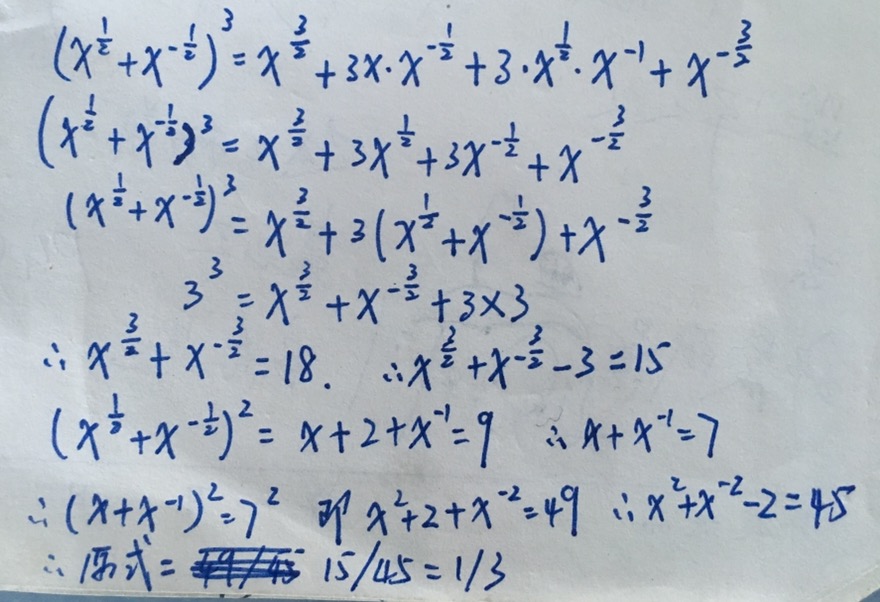 (x^{\frac{1}{2}}+x^{-\frac{1}{2}})^3=x^{\frac{3}{2}}+3x·x^{-\frac{1}{2}}+3·x^{\frac{1}{2}}·x^{-1}+x^{-\frac{3}{2}}
(x^{\frac{1}{2}}+x^{-\frac{1}{2}})^3=x^{\frac{3}{2}}+3x^{\frac{1}{2}}+3x^{-\frac{1}{2}}+x^{-\frac{3}{2}}
(x^{\frac{1}{2}}+x^{-\frac{1}{2}})^3=x^{\frac{3}{2}}+3(x^{\frac{1}{2}}+x^{-\frac{1}{2}})+x^{-\frac{3}{2}}
3^3=x^{\frac{3}{2}}+x^{-\frac{3}{2}}+3×3
∴x^{\frac{3}{2}}+x^{-\frac{3}{2}}=18. ∴x^{\frac{3}{2}}+x^{-\frac{3}{2}}-3=15
(x^{\frac{1}{2}}+x^{-\frac{1}{2}})^2=x+2+x^{-1}=9 ∴x+x^{-1}=7
∴(x+x^{-1})^2=7^2 即x^2+2+x^{-2}=49 ∴x^2+x^{-2}-2=45
∴原式=15/45=1/3